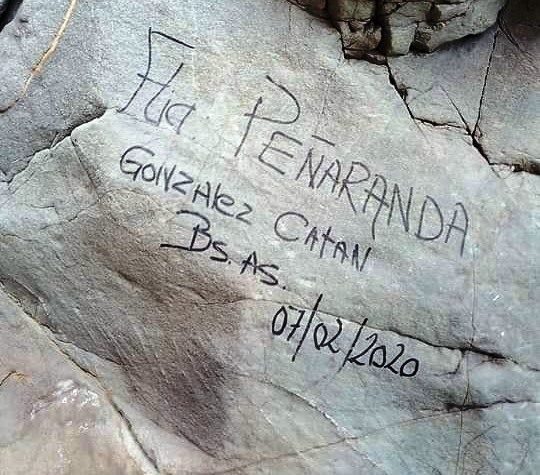 Flia. PEÑARANDA
GONZALEZ CATAN
BS. AS.
07/02/2020